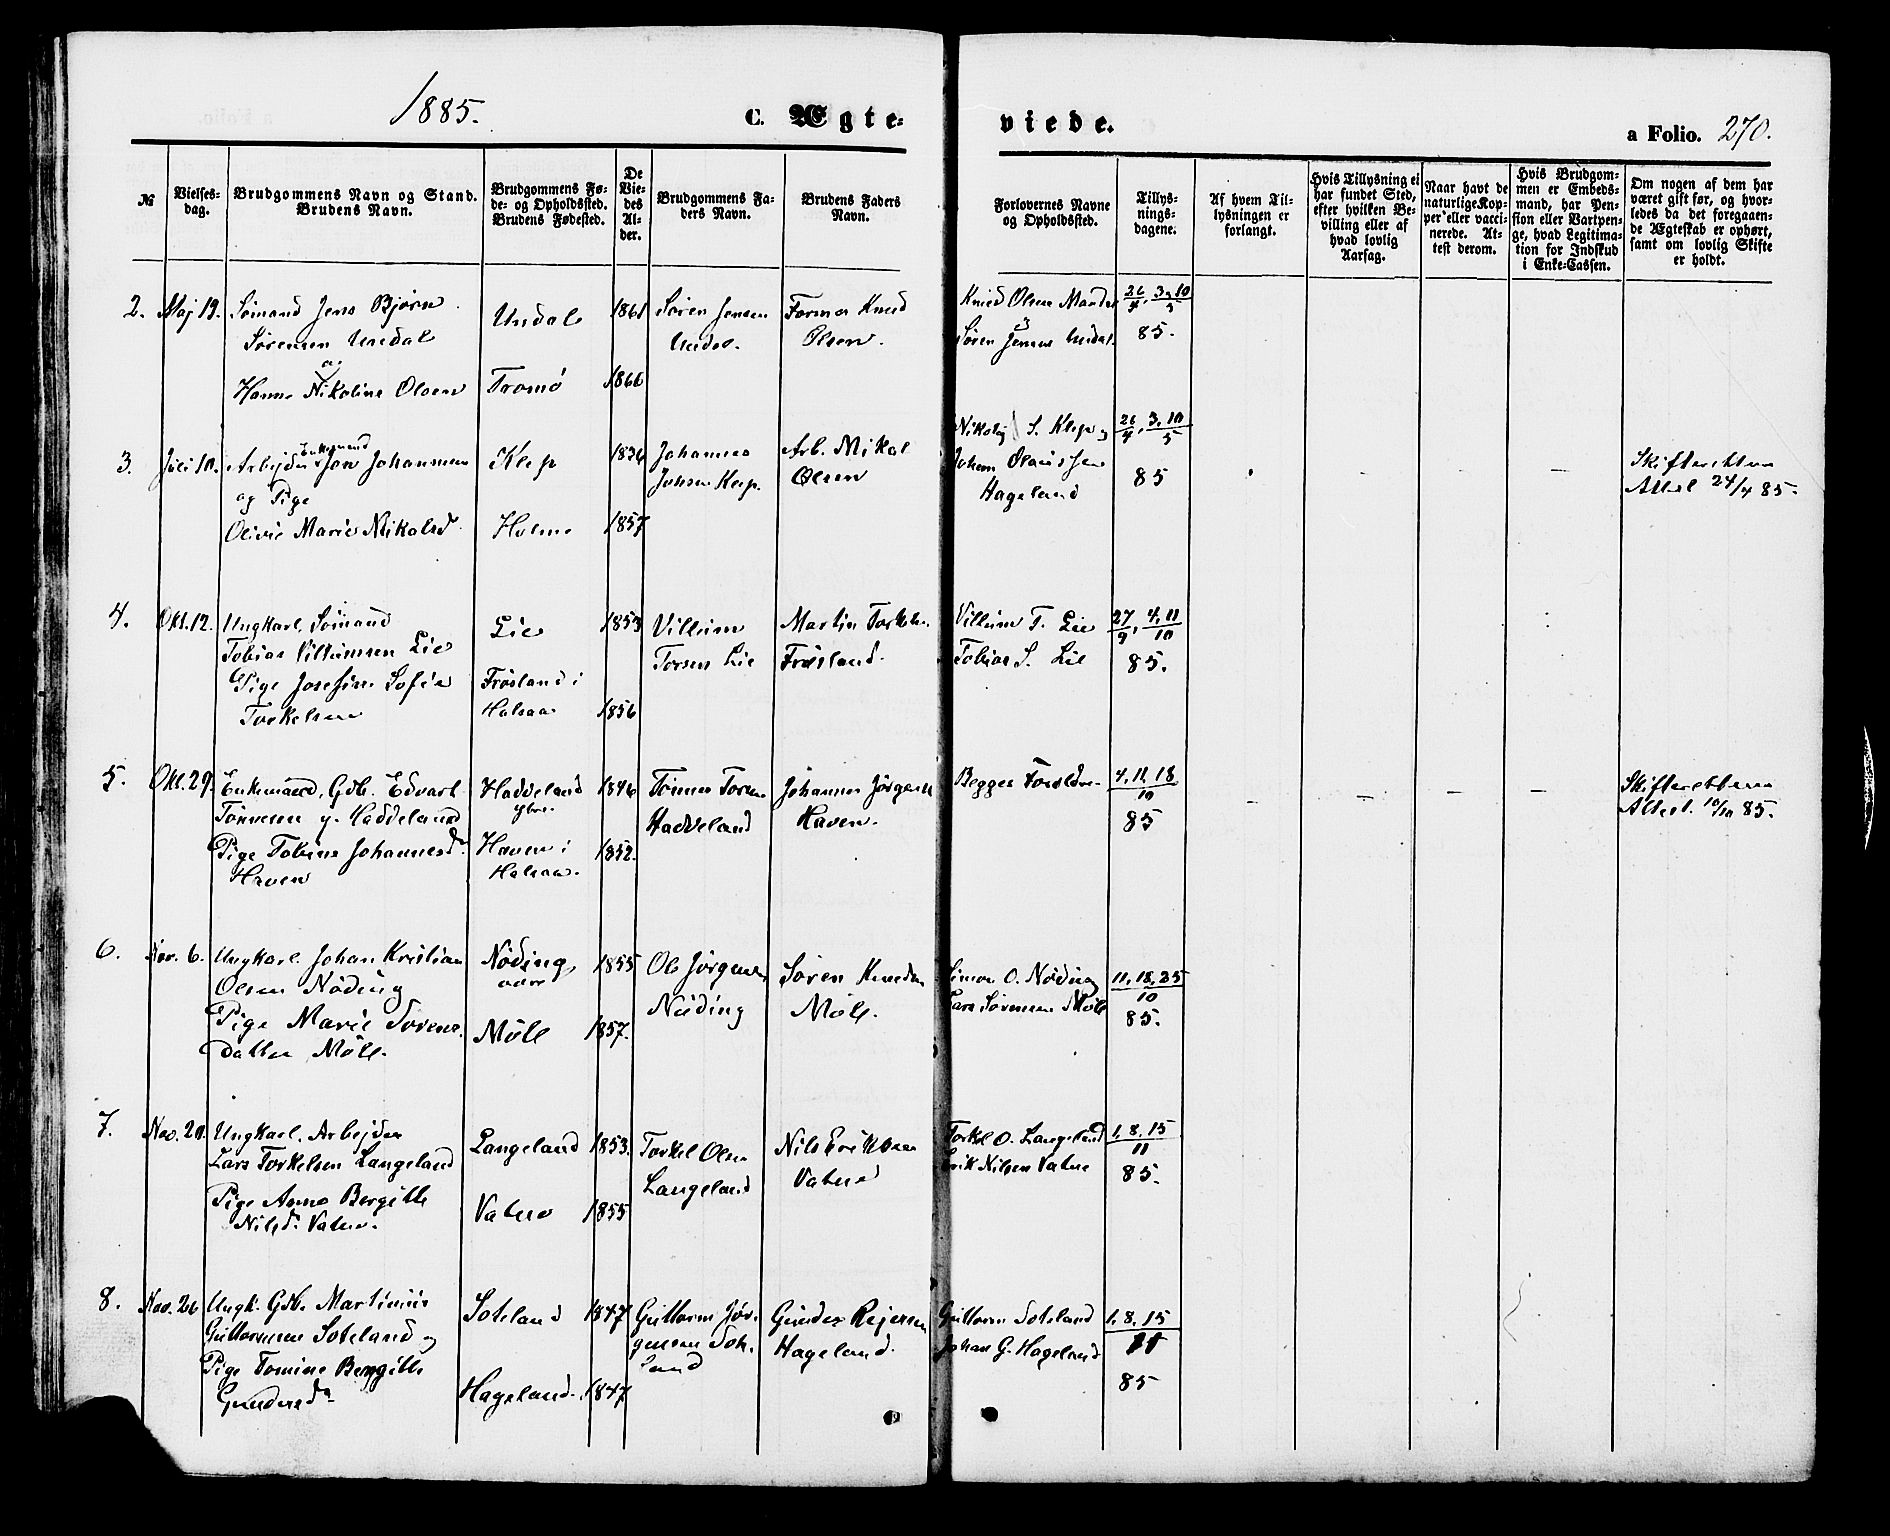 1885.
C. Ægte-
viede.
a Folio. 270.
№
Vielses-
dag.
Brudgommens Navn og Stand.
Brudens Navn.
Brudgommens Fø-
de- og Opholdssted.
Brudens Fødested.
De
Vie-
des
Al-
der.
Brudgommens Fa-
ders Navn.
Brudens Faders
Navn.
Forlovernes Navne
og Opholdssted.
Tillys-
nings-
dagene.
Af hvem Til-
lysningen er
forlangt.
Hvis Tillysning ei
har fundet Sted,
efter hvilken Be-
villing eller af
hvad lovlig
Aarsag.
Naar havt de
naturlige Kop-
per eller vacci-
nerede. At-
test derom.
Hvis Brudgom-
men er Embeds-
mand, har Pen-
sion eller Vartpen-
ge, hvad Legitima-
tion for Indskud
i Enke-Cassen.
Om nogen af dem har
været gift før, og hvor-
ledes da det foregaaen-
de Ægteskab er ophørt,
samt om lovlig Skifte
er holdt.
2. Maj 19.
Sømand Jens Bjørn
Sørensen Undal
og
Hanne Nikoline Olsen
Undal
Tromø
1861
1866
Søren Jensen
Undal.
Farmer Knud
Olsen.
Knud Olsen Mandal
Søren Jensen Undal.
26/4, 3, 10/5
85.
3. Juli 10.
Enkemand
Arbejder Jon Johannesen
og Pige
Olivie Marie Nikolsd
Klep
Holme
1836
1857
Johannes
Jonsen Klep.
Arb. Nikol
Olsen
Nikolaj S. Klep og
Johan Olaussen
Hageland
26/4, 3, 10/5
85
Skifterettens
Attest 24/4 85.
4. Okt. 12.
Ungkarl, Sømand
Tobias Villumsen Lie
Pige Josefine Sofie
Torkelsen
Lie
Frøsland i
Halsaa
1853
1856
Villum
Torsen Lie
Martin Torkels.
Frøsland.
Villum T. Lie
Tobias S. Lie
27/9, 4, 11/10
85.
5. Okt. 29.
Enkemand, Gdb. Edvart
Tønnesen y. Haddeland
Pige Tobine Johannesd
Haven
Haddeland
ybre
Haven i
Halsaa.
1846
1852.
Tønnes Tores.
Haddeland
Johannes Jørgensen
Haven.
Begges Forældre
4, 11, 18/10
85
Skifterettens
Attest. 10/10 85.
6. Nov. 6.
Ungkarl. Johan Kristian
Olsen Nøding
Pige Marie Sørens-
datter Møll.
Nøding
Møll
1855
1857.
Ole Jørgensen
Nøding
Søren Knudsen
Møll.
Simon O. Nøding
Lars Sørensen Møll
11, 18, 25/10
85.
7. Nov. 20.
Ungkarl. Arbejder
Lars Torkelsen Langeland
Pige Anne Bergitte
Nilsd. Vatne.
Langeland
Vatne
1853.
1855
Torkel Olsen
Langeland
Nils Eriksen
Vatne
Torkel O. Langeland
Erik Nilsen Vatne
1, 8, 15/11
85.
8. Nov. 26
Ungk. Gdb. Martinius
Guttormsen Soteland og
Pige Tomine Bergitte
Gundersd.
Soteland
Hageland.
1847
1847
Guttorm Jør-
gensen Sote-
land
Gunder Reiersen
Hageland.
Guttorm Soteland
Johan G. Hageland
1, 8, 15/11
85